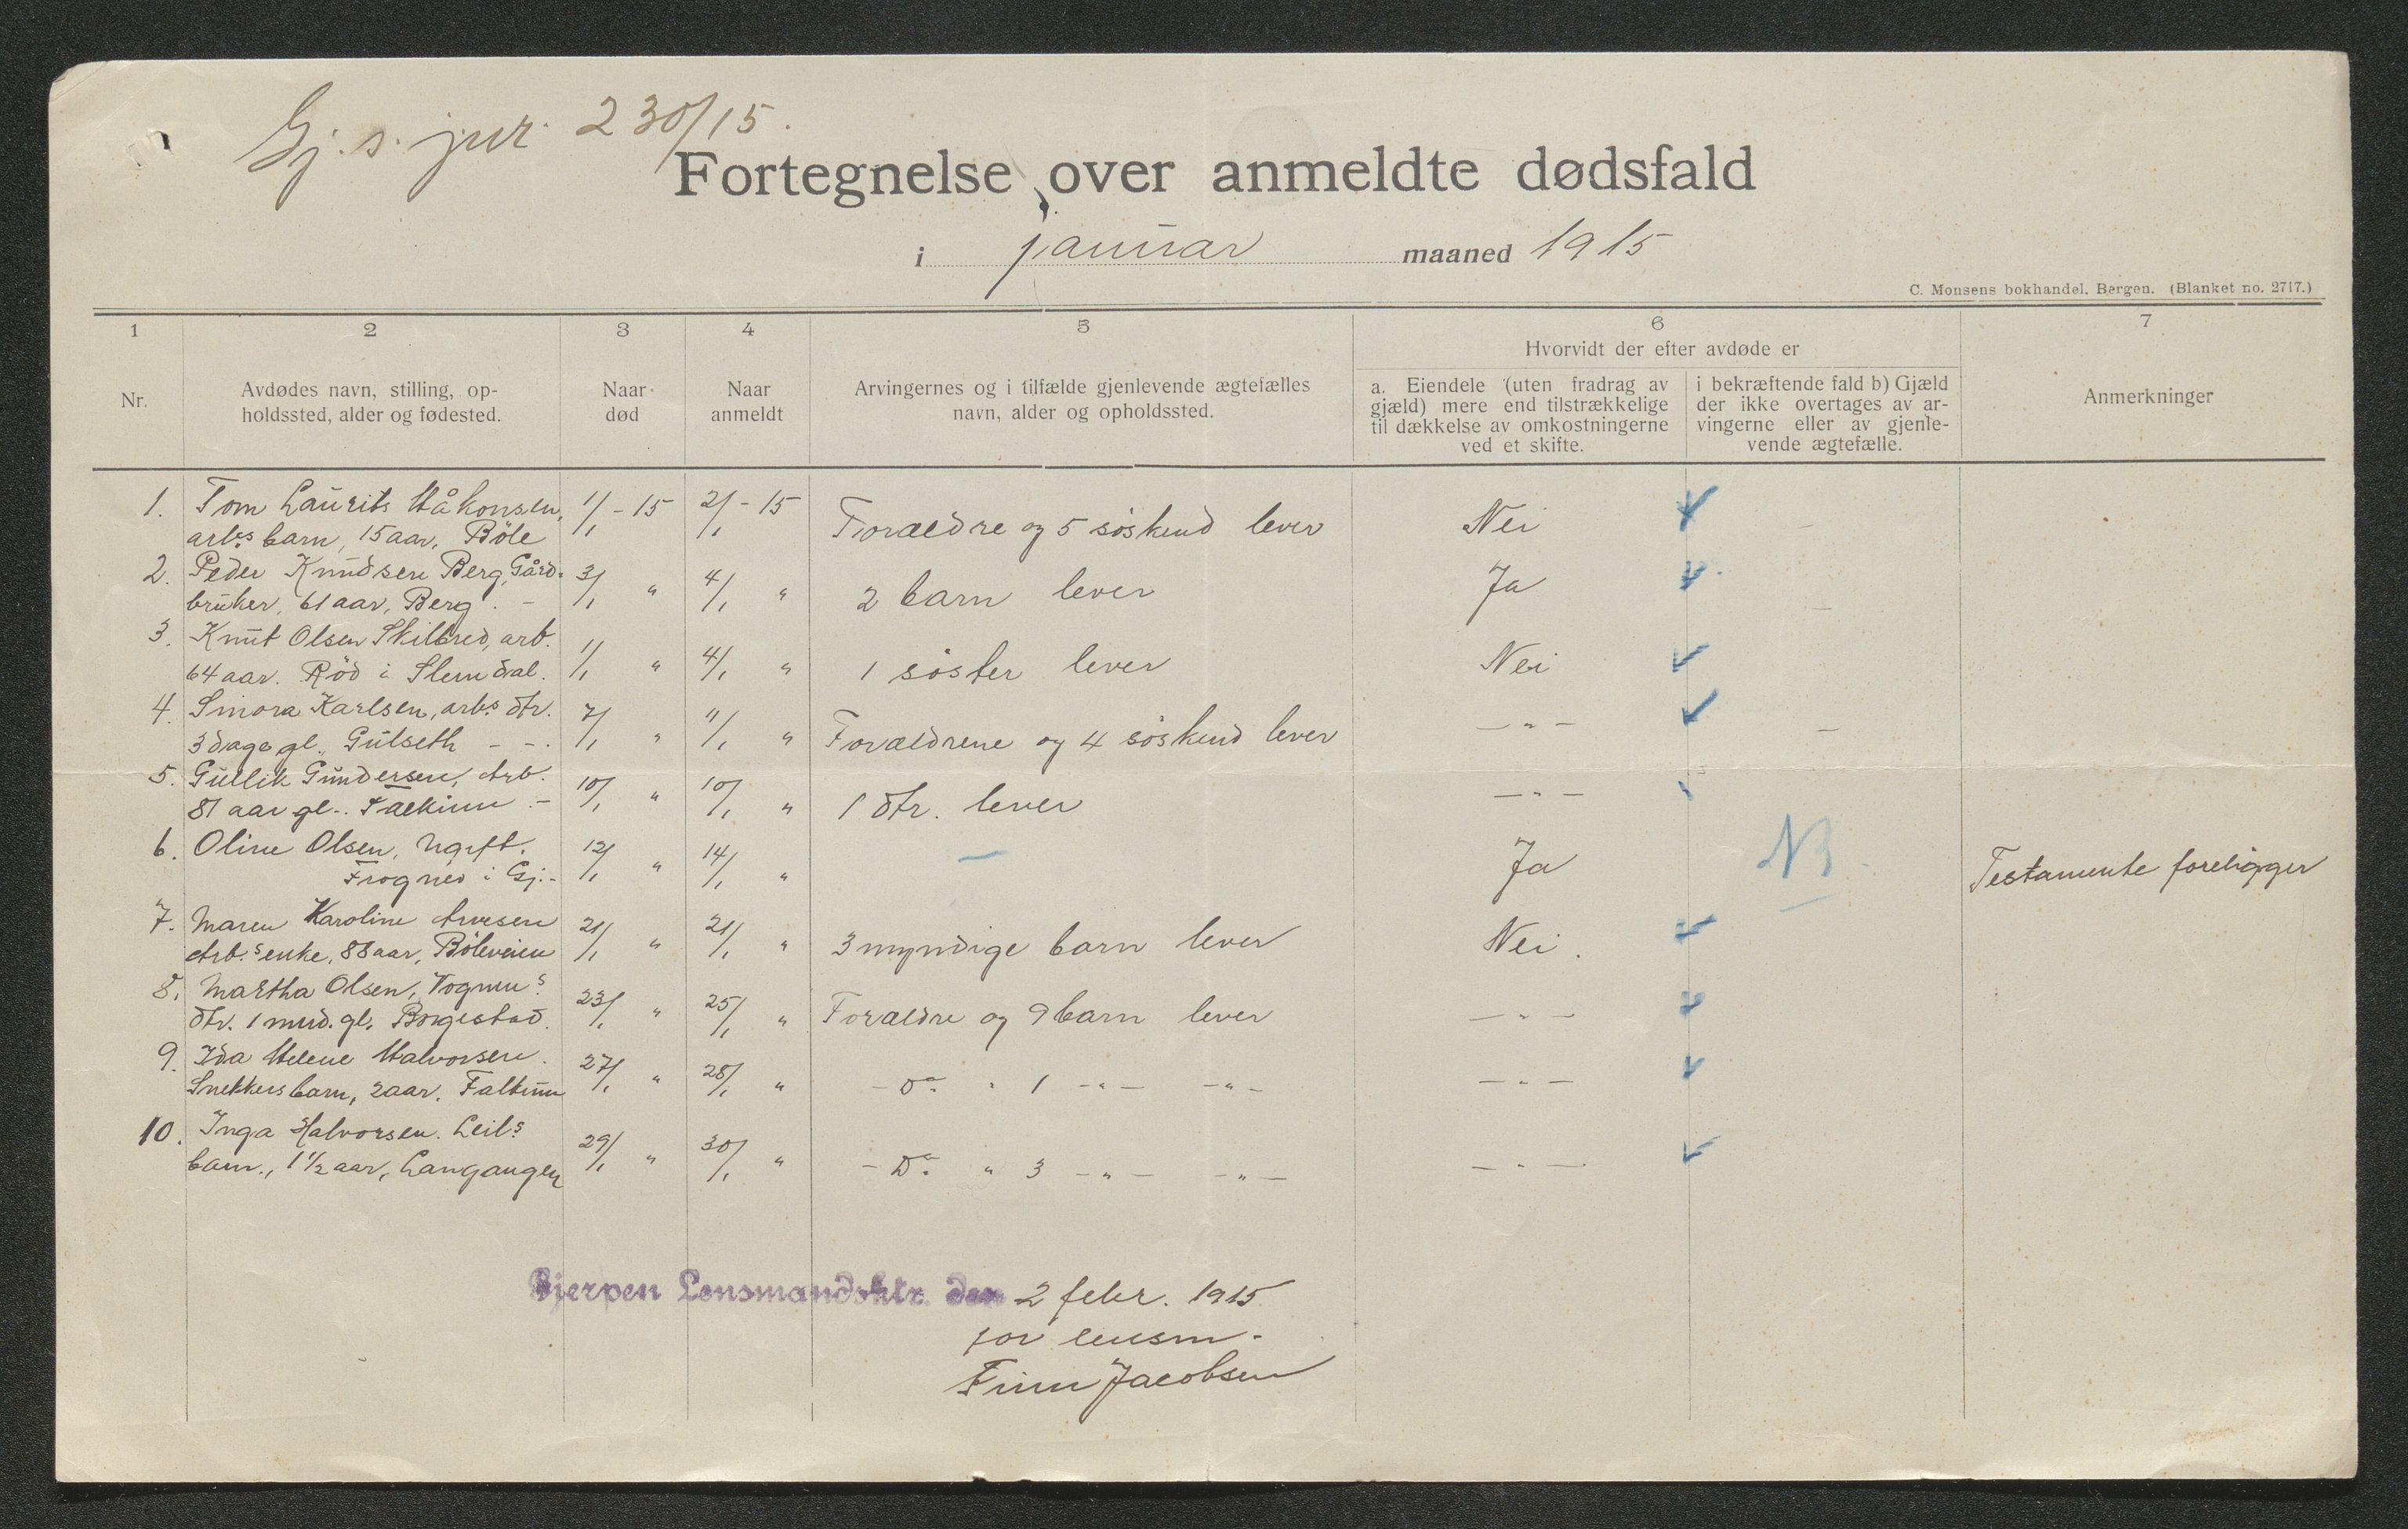 Gj. s. jur. 230/15.
Fortegnelse over anmeldte dødsfald
i januar maaned 1915
C. Monsens bokhandel, Bergen. (Blanket no. 2717.)
1 2 3 4 5 6 7
Nr.
Avdødes navn, stilling, op-
holdssted, alder og fødested.
Naar
død
Naar
anmeldt
Arvingernes og i tilfælde gjenlevende ægtefælles
navn, alder og opholdssted.
Hvorvidt der efter avdøde er
a. Eiendele (uten fradrag av
gjæld) mere end tilstrækkelige
til dækkelse av omkostningerne
ved et skifte.
i bekræftende fald b) Gjæld
der ikke overtages av ar-
vingerne eller av gjenle-
vende ægtefælle.
Anmerkninger
1. Tom Laurits Håkonsen, 1/1 - 15 2/1 - 15 Forældre og 5 søskend lever Nei -
arb.s barn, 15 aar, Böle
2. Peder Knudsen Berg, Gård- 3/1 " 4/1 " 2 barn lever Ja -
bruker, 61 aar, Berg. -
3. Knut Olsen Skilbred, arb. 1/1 " 4/1 " 1 søster lever Nei
64 aar. Röd i Slemdal.
4. Sinora Karlsen, arb.s dtr. 7/1 " 11/1 " Forældrene og 4 søskend lever - " - -
3 dage gl., Gulseth - -.
5. Gullik Gundersen, Arb. 10/1 " 10/1 " 1 dtr. lever - " -
81 aar gl.. Falkum. -
6. Oline Olsen, Ugift. 12/1 " 14/1 " - Ja NB. Testamente foreligger
Frogner i Gj.-
7. Maren Karoline Arvesen 21/1 " 21/1 " 3 myndige barn lever Nei.
Arb.s enke, 88 aar, Böleveien
8. Martha Olsen, Vognm.s 23/1 " 25/1 " Forældre og 9 barn lever - " -
dtr. 1 mnd. gl. Borgestad.
9. Ida Helene Halvorsen. 27/1 " 28/1 " - Do. " 1 - " - - " - - " -
Snekkers barn, 2 aar. Falkum
10. Inga Halvorsen. Leil.s 29/1 " 30/1 " - Do. " 3 - " - - " - - " -
barn., 1 1/2 aar, Langangen
Gjerpen Lensmandsktr. den 2 febr. 1915
for lensm.
Finn Jacobsen